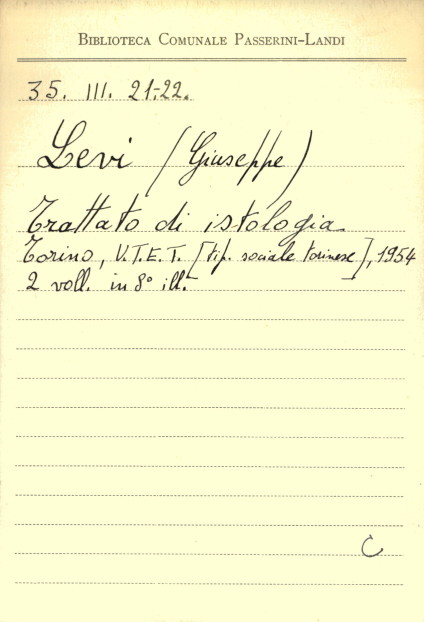 BIBLIOTECA COMUNALE PASSERINI-LANDI
35. III. 21-22.
Levi (Giuseppe)
Trattato di istologia
Torino, U.T.E.T. [tip. sociale torinese], 1954
2 voll. in 8° ill.
C